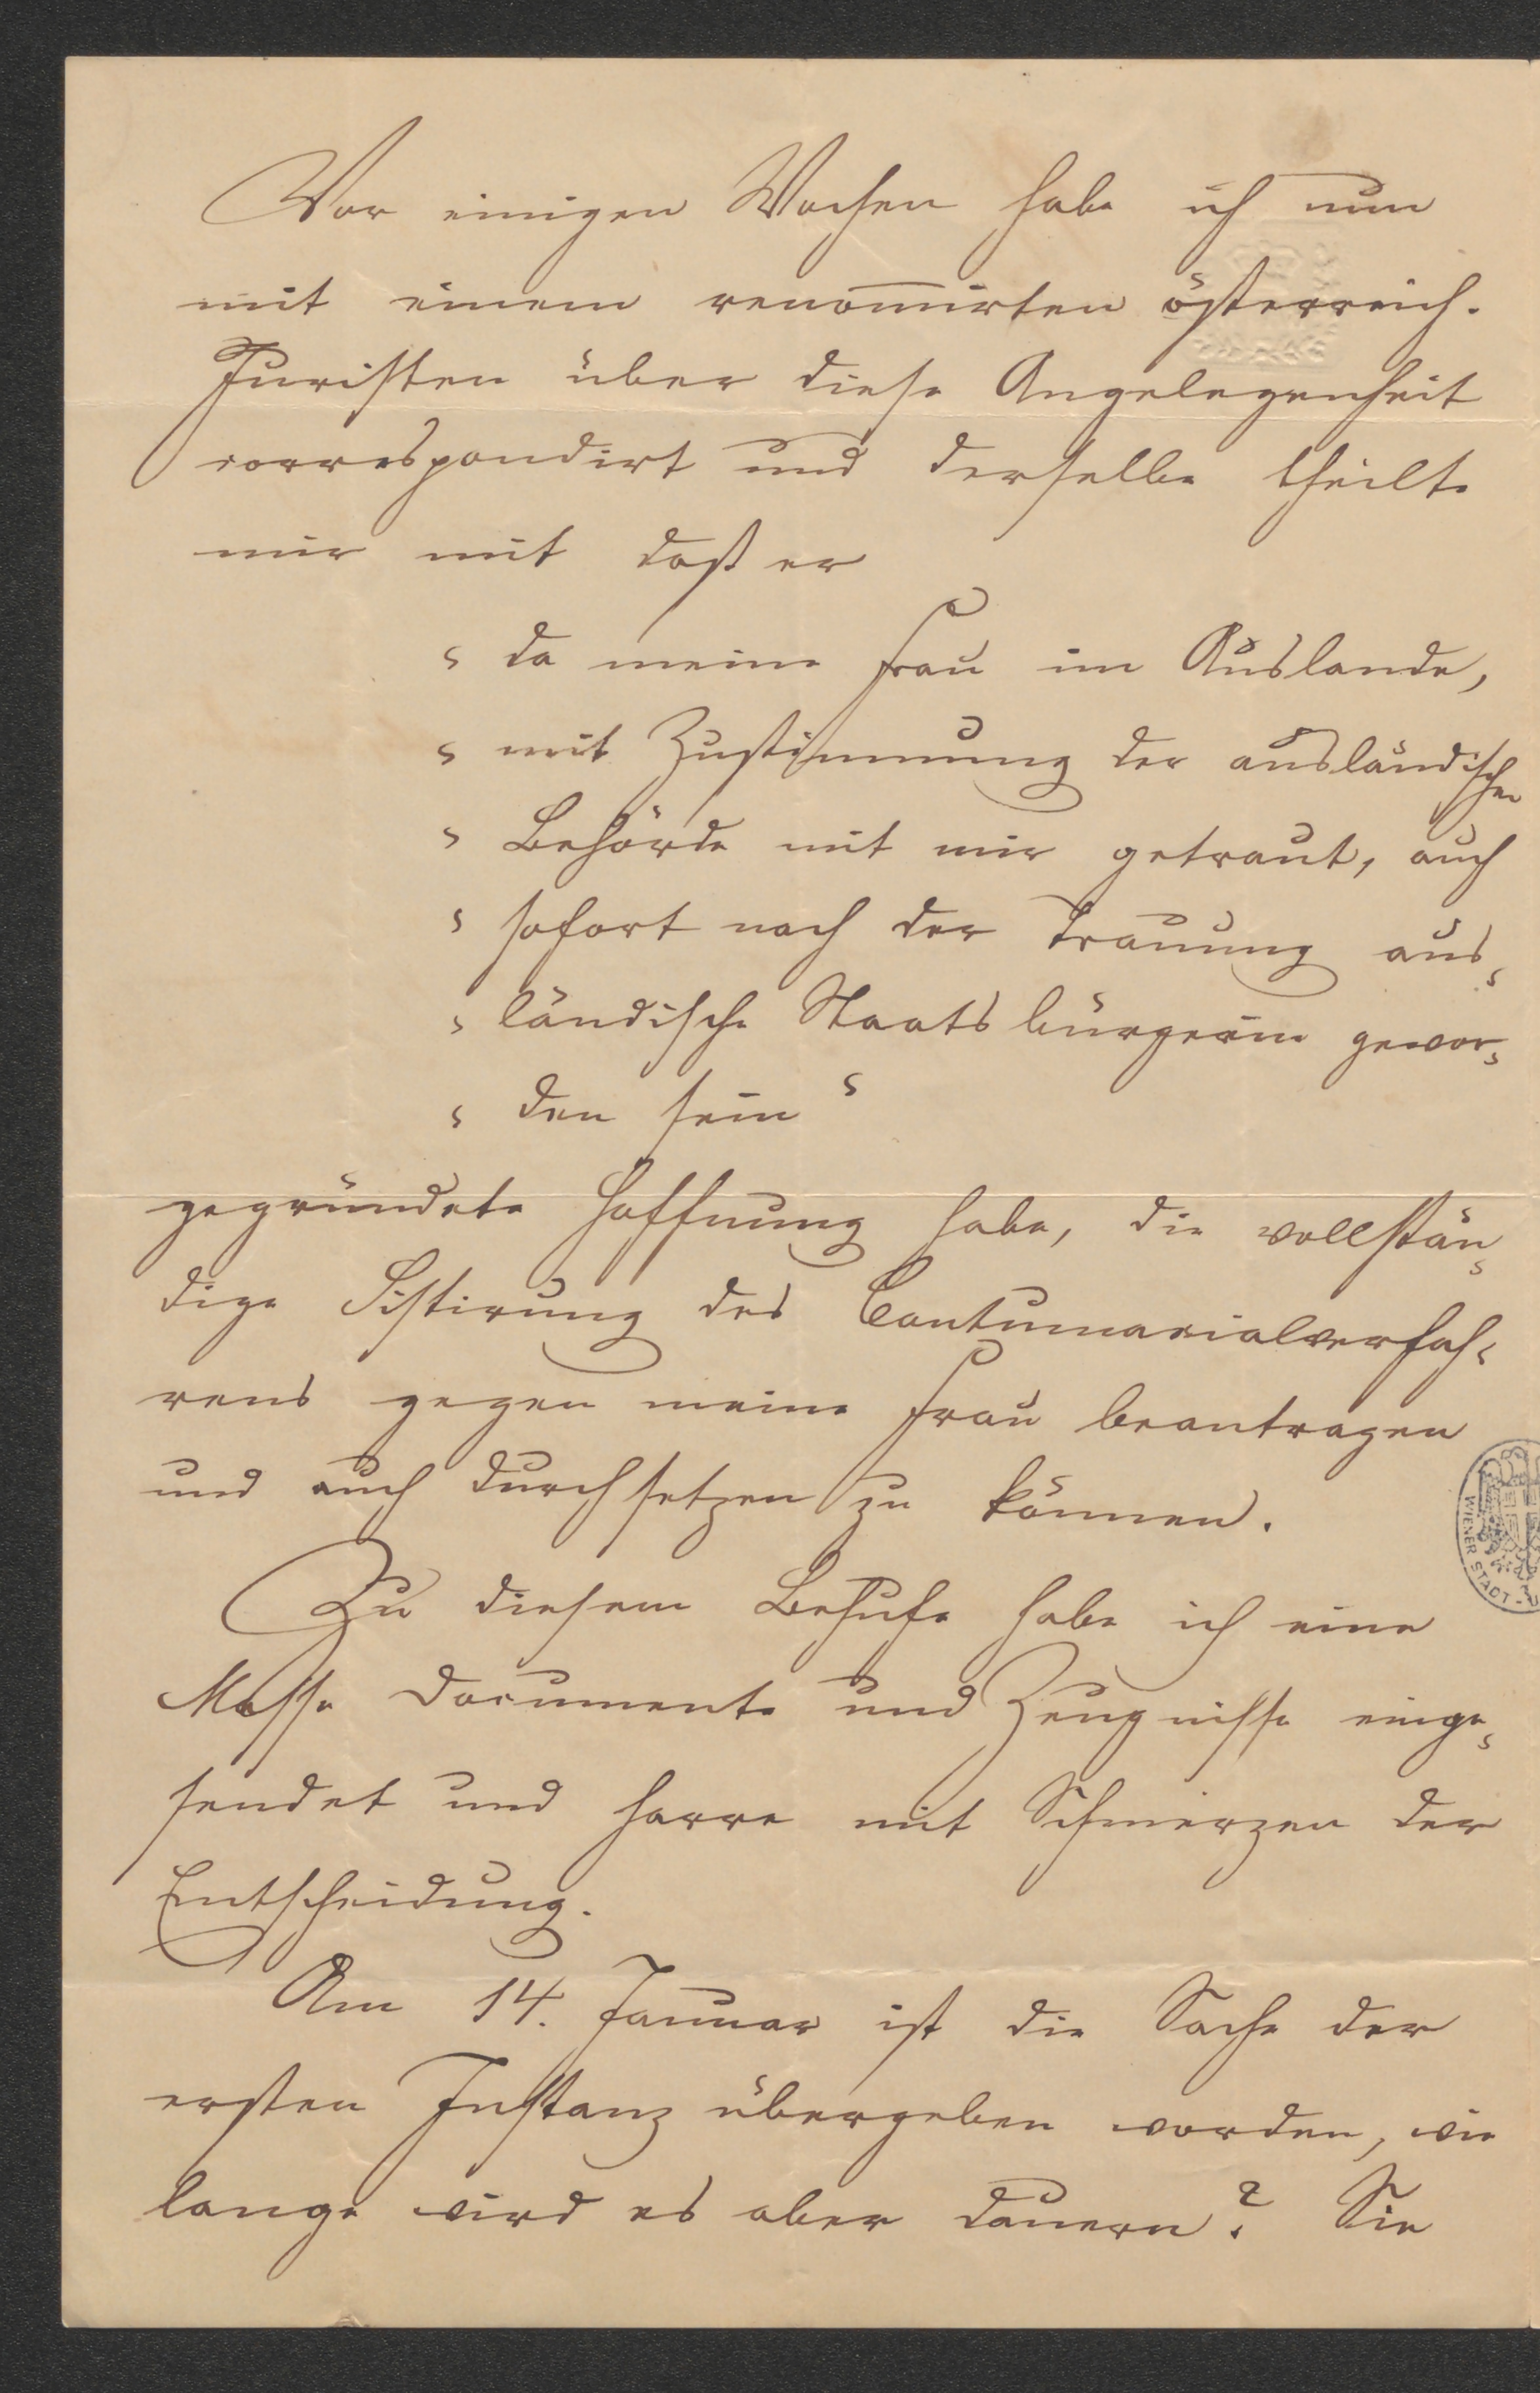 Vor einigen Wochen habe ich nun
mit einem renom̅irten österreich.
Juristen über diese Angelegenheit
correspondirt und derselbe theilte
mir mit daß er
" da meine Frau im Auslande,
" mit Zustimmung der ausländischen
" Behörde mit mir getraut, auch
" sofort nach der Trauung aus-
" ländische Staatsbürgerin gewor-
" den sein "
gegründete Hoffnung habe, die vollstän-
dige Sistirung des Contumacialverfah-
rens gegen meine Frau beantragen
und auch durchsetzen zu können.
Zu diesem Behufe habe ich eine
Masse Documente und Zeugnisse einge-
sendet und harre mit Schmerzen der
Entscheidung.
Am 14. Januar ist die Sache der
ersten Instanz übergeben worden, wie
lange wird es aber dauern? Sie
WIENER STADT-U